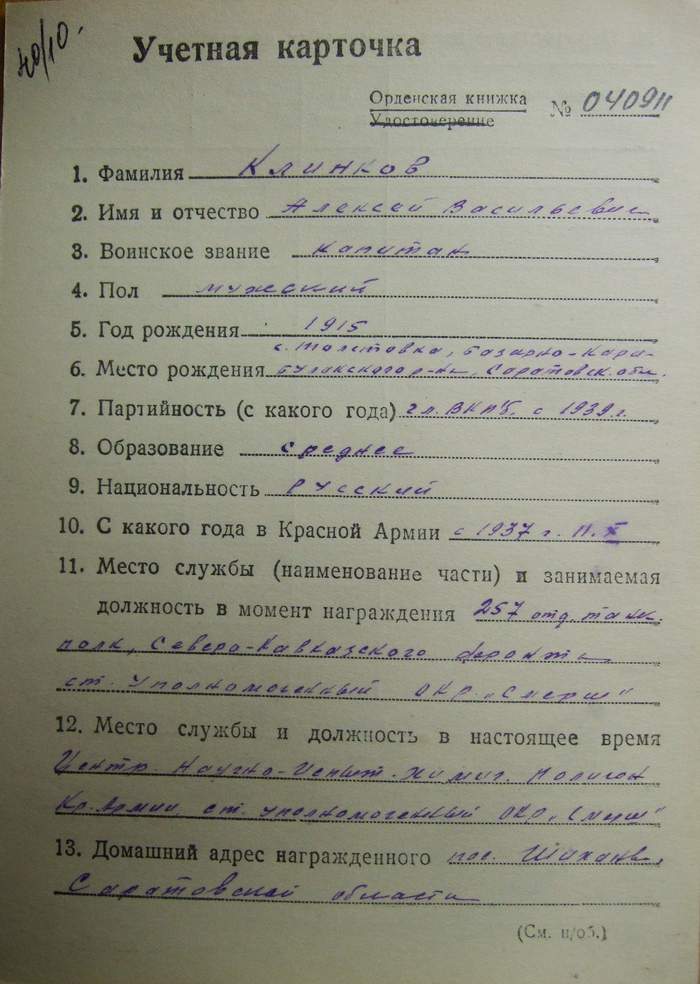 40/10.
Учетная карточка
Орденская книжка
Удостоверение № 040911
1. Фамилия Клинков
2. Имя и отчество Алексей Васильевич
3. Воинское звание капитан
4. Пол мужской
5. Год рождения 1915
с. Толстовка, Базарно-Кара-
6. Место рождения булакского р-на, Саратовск. обл.
7. Партийность (с какого года) чл. ВКПб. с 1939 г.
8. Образование среднее
9. Национальность Русский
10. С какого года в Красной Армии с 1937 г.
11. Место службы (наименование части) и занимаемая
должность в момент награждения 257 отд. танк.
полк, Северо-Кавказского фронта
ст. уполномоченный ОКР „Смерш"
12. Место службы и должность в настоящее время
Центр. Научно-Испыт. Химич. Полигон
Кр. Армии, ст. уполномоченный ОКР „Смерш"
13. Домашний адрес награжденного пос. Шиханы,
Саратовской области
(См. н/об.)